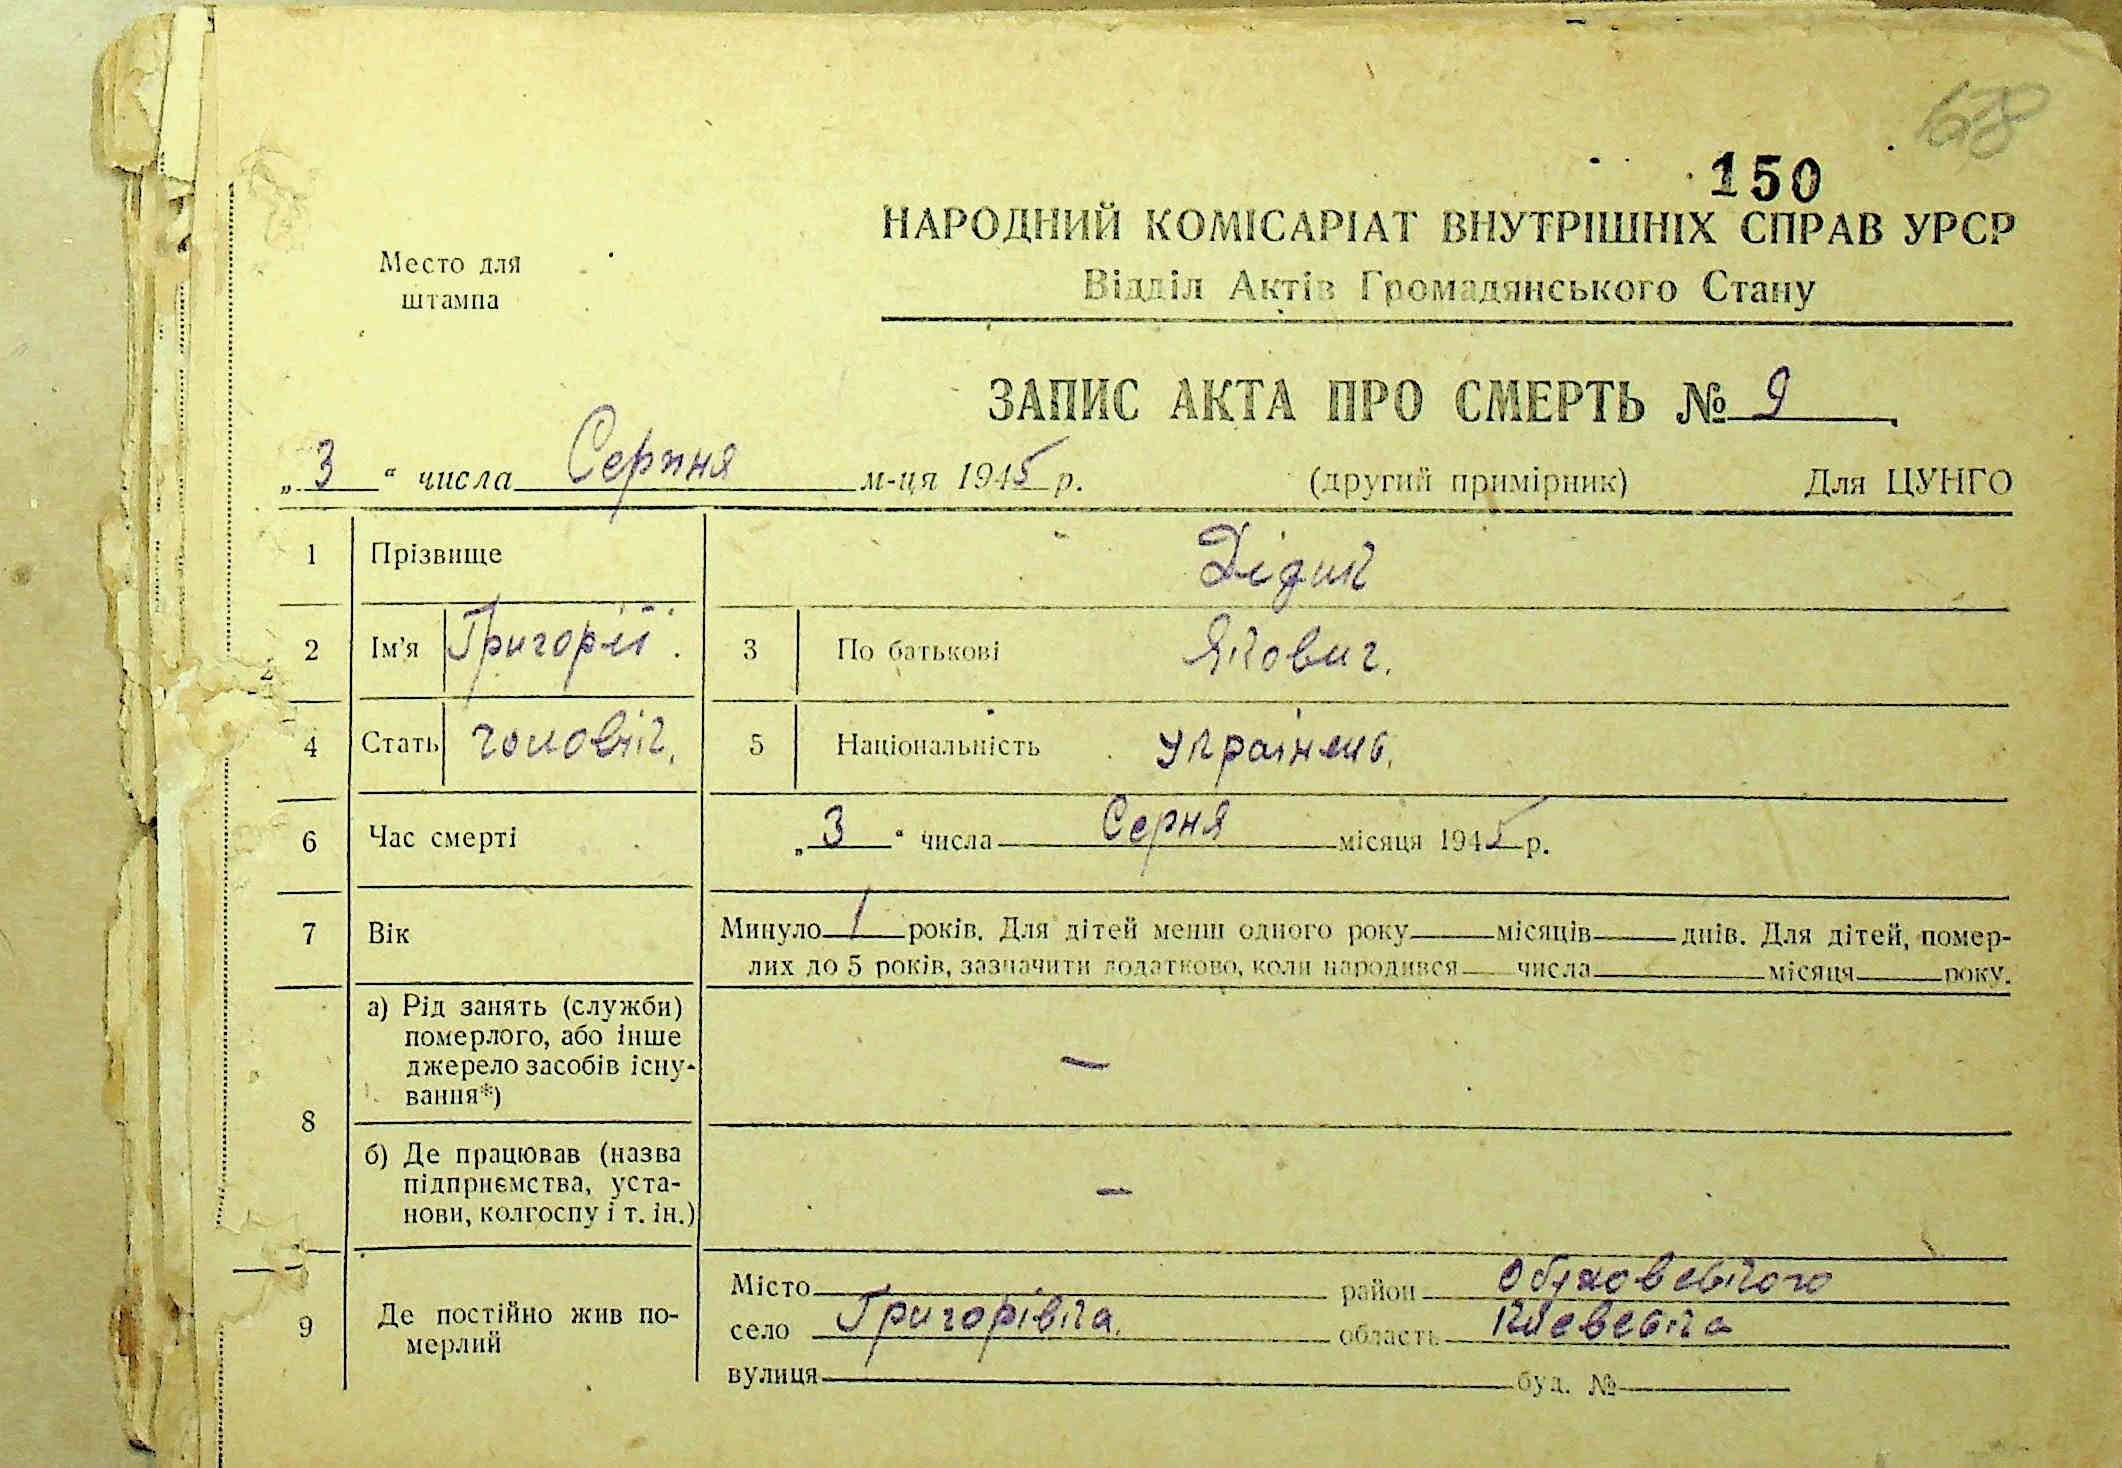 68
150
НАРОДНИЙ КОМІСАРІАТ ВНУТРІШНІХ СПРАВ УРСР
Відділ Актів Громадянського Стану
Место для
штампа
ЗАПИС АКТА ПРО СМЕРТЬ № 9
„3“ числа Серпня м-ця 1945 р. (другий примірник) Для ЦУНГО
1 Прізвище Дідик
2 Ім'я Григорій. 3 По батькові Якович.
4 Стать чоловік. 5 Національність українець.
6 Час смерті „3“ числа Серня місяця 1945 р.
7 Вік Минуло 1 років. Для дітей менш одного року місяців днів. Для дітей, помер-
лих до 5 років, зазначити додатково, коли народився числа місяця року.
8 а) Рід занять (служби)
померлого, або інше
джерело засобів існу-
вання*) —
б) Де працював (назва
підприємства, уста-
нови, колгоспу і т. ін.) —
9 Де постійно жив по-
мерлий
Місто район Обуховського
село Григорівка. область Київська
вулиця буд. №